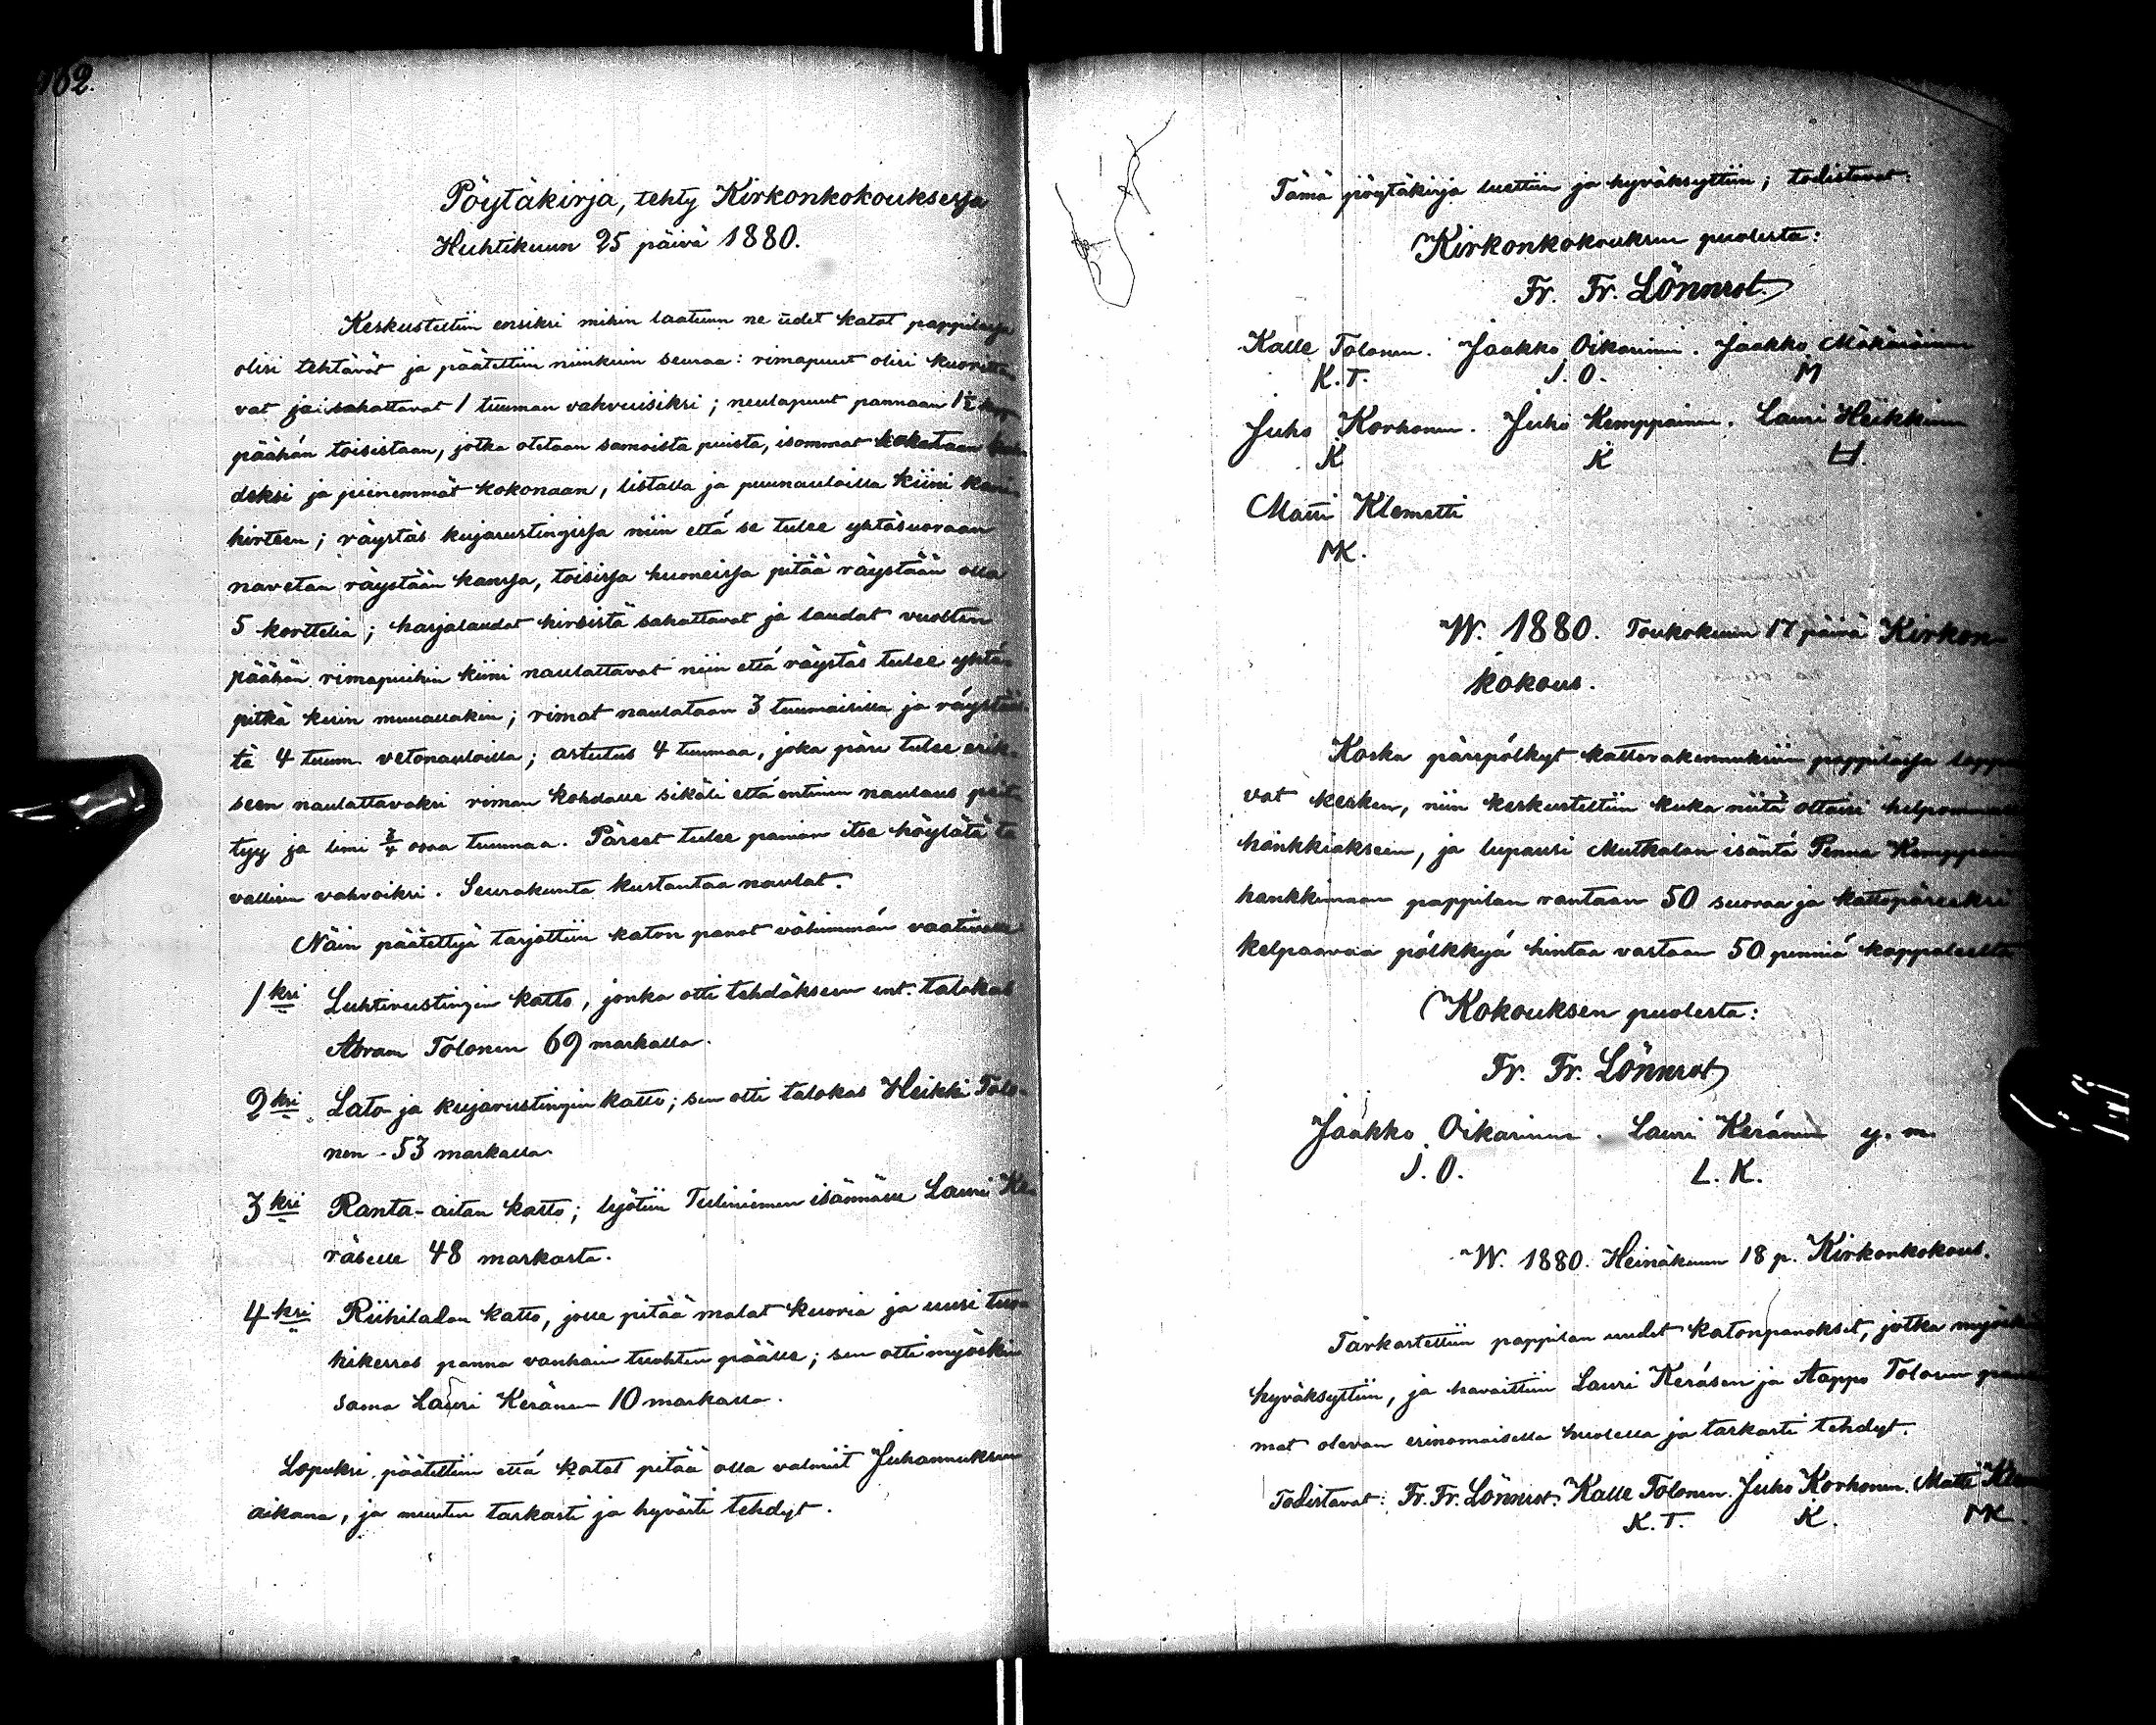 102.
Pöytäkirja, tehty Kirkonkokouksessa
Huhtikuun 25 päivä 1880.
Keskusteltiin ensiksi mihin laatuun ne uudet katot pappilassa
olisi tehtävät ja päätettiin niinkuin seuraa: rimapuut olisi kuoritta-
vat ja sahattavat 1 tuuman vahvuisiksi; neulapuut pannaan 1½
päähän toisistaan, jotka otetaan samoista puista, isommat
deksi ja pienemmät kokonaan, listalla ja puunauloilla kiini
hirteen; räystäs kujarustingissa niin että se tulee yhtäsuoraan
navetan räystään kanssa, toisissa huoneissa pitää räystään olla
5 korttelia; harjalaudat hirsistä sahattavat ja laudat vuolten
päähän rimapuihin kiini naulattavat niin että räystäs tulee yhtä-
pitkä kuin muuallakin; rimat naulataan 3 tuumaisilla ja räystääl-
tä 4 tuum. vetonauloilla; astutus 4 tuumaa, joka päre tulee erik-
seen naulattavaksi riman kohdalle sikäli että entinen naulaus peit-
tyy ja limi ¾ osaa tuumaa. Päreet tulee panian itse höylätä ta-
vallisen vahvoiksi. Seurakunta kustantaa naulat.
Näin päätettyä tarjottiin katon panot vähimmän vaativalle
1 ksi Luhtirustingin katto, jonka otti tehdäkseen ent. talokas
Abram Tolonen 69 markalla.
2 ksi Lato- ja kujarustingin katto; sen otti talokas Heikki Tolo-
nen - 53 markalla
3 ksi Ranta-aitan katto; lyötiin Tuliniemen isännälle Lauri Ke-
räselle 48 markasta.
4 ksi Riihiladon katto, jolle pitää malat kuoria ja uusi tuo-
hikerros panna vanhain tuohten päälle; sen otti myöskin
sama Lauri Keränen 10 markalla.
Lopuksi päätettiin että katot pitää olla valmiit Juhannuksen
aikana, ja muuten tarkasti ja hyvästi tehdyt.
Tämä pöytäkirja luettiin ja hyväksyttiin; todistavat:
Kirkonkokouksen puolesta:
Fr. Fr. Lönnrot.
Kalle Tolonen. Jaakko Oikarinen. Jaakko Mäkäräinen
K.T. J.O. M
Juho Korhonen. Juho Kemppainen. Lauri Heikkinen
K K H.
Matti Klemetti
MK.
W. 1880. Toukokuun 17 päivä Kirkon-
kokous.
Koska pärepölkyt kattorakennuksiin pappilassa loppu-
vat kesken, niin keskusteltiin kuka niitä ottaisi helpommalla
hankkiakseen, ja lupausi Mutkalan isäntä Penna Kemppainen
hankkimaan pappilan rantaan 50 suoraa ja kattopäreeksi
kelpaavaa pölkkyä hintaa vastaan 50 penniä kappaleelta
Kokouksen puolesta:
Fr. Fr. Lönnrot
Jaakko Oikarinen. Lauri Keränen y. m.
J.O. L.K.
W. 1880. Heinäkuun 18 p. Kirkonkokous.
Tarkastettiin pappilan uudet katonpanokset, jotka myöskin
hyväksyttiin, ja havaittiin Lauri Keräsen ja Aappo Tolosen pane-
mat olevan erinomaisella huolella ja tarkasti tehdyt.
Todistavat: Fr. Fr. Lönnrot. Kalle Tolonen. Juho Korhonen. Matti
K.T. K. MK.